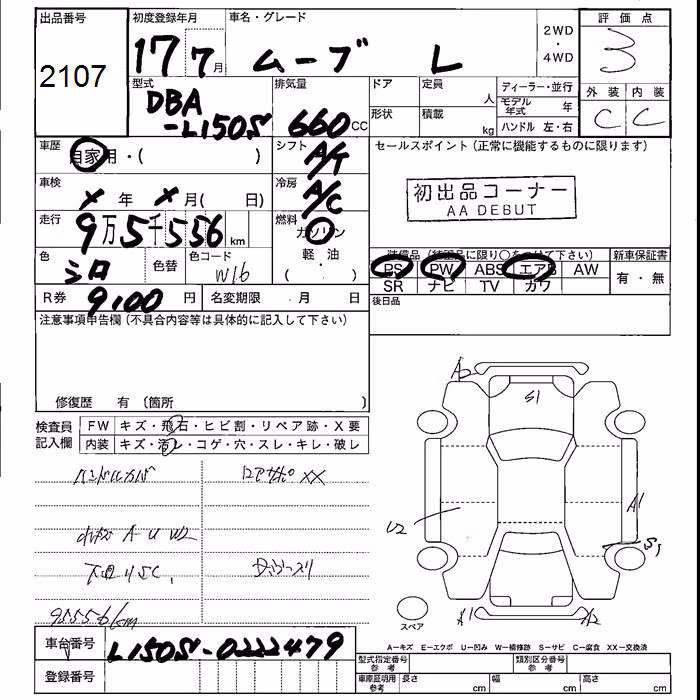 出品番号 初度登録年月 車名・グレード 2WD・4WD 評価点
2107 17 7月 ムーブ L 3
型式 排気量 ドア 定員 人 ディーラー・並行 外装 内装
DBA-L150S 660cc 形状 積載 kg モデル年式 年 C C
ハンドル 左・右
車歴 自家用・( ) シフト A/T セールスポイント (正常に機能するものに限ります)
車検 X年 X月( 日) 冷房 A/C 初出品コーナー
AA DEBUT
走行 9万5千556km 燃料 ガソリン
軽・油
( )
色 シロ 色替 色コード W16
装備品 (純正品に限り○をつけて下さい) 新車保証書
PS PW ABS エアB AW 有・無
SR ナビ TV カワ
R券 9,100円 名変期限 ・月・日 後日品
注意事項申告欄 (不具合内容等は具体的に記入して下さい)
修復歴 有 (箇所 )
検査員記入欄 FW キズ・飛石・ヒビ割・リペア跡・X要
内装 キズ・汚レ・コゲ・穴・スレ・キレ・破レ
ハンドルカバ
小キズ A U W2
95556km
A2
S1
A1
U2
S1
A1
A2
スペア
A-キズ E-エクボ U-凹み W-補修跡 S-サビ C-腐食 XX-交換済
車台番号 L150S-0222479
登録番号
型式指定番号 参考 類別区分番号 参考
車庫証明用 参考 長さ cm 幅 cm 高さ cm